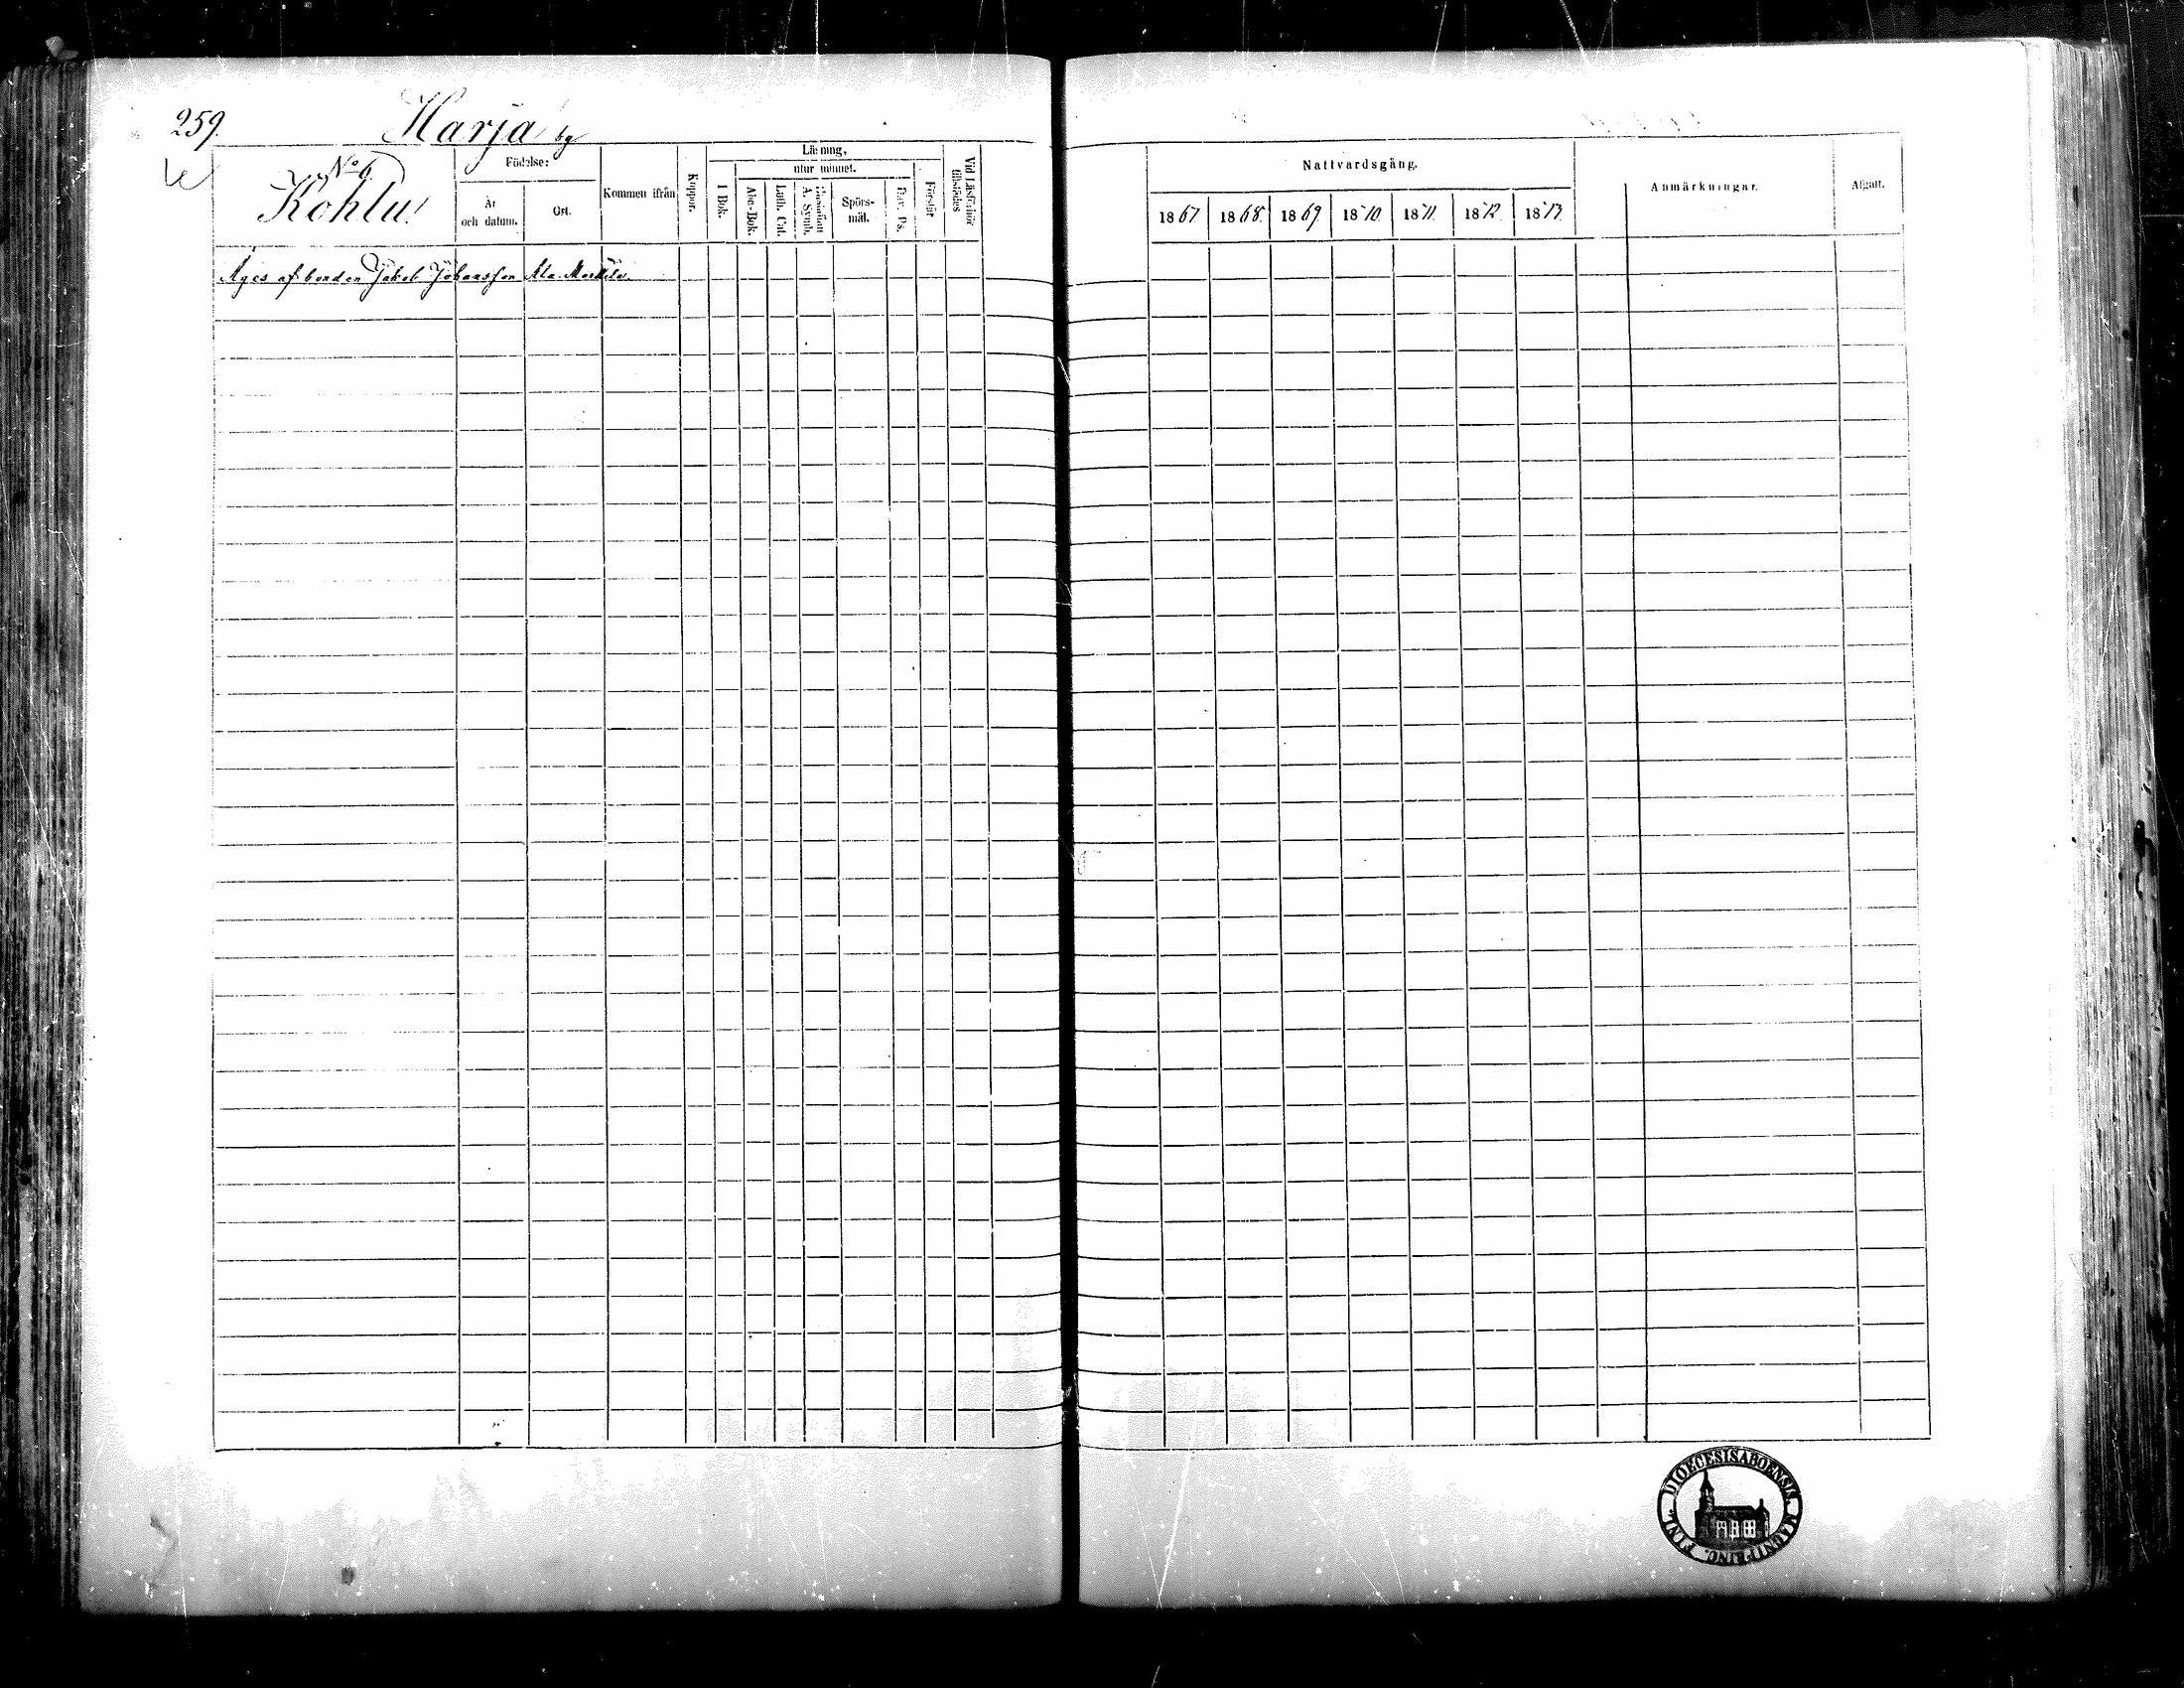 259.
Harja by
No 6
Kohlu.
Födelse:
År och datum.
Ort.
Kommen ifrån
Koppor.
Läsning,
utur minnet.
I Bok.
Abc-Bok.
Luth. Cat.
A. Symb.
Spörs-mål.
Dav. Ps.
Förstår
Vid Läsförhör tillstädes
Nattvardsgång.
1867
1868.
1869.
1870.
1871.
1872.
1873.
Anmärkningar.
Afgått.
Äges af bonden Jakob Johansson Ala-Markila.
DIOECESIS ABOENSIS. MAGNI PRINC. FINL.